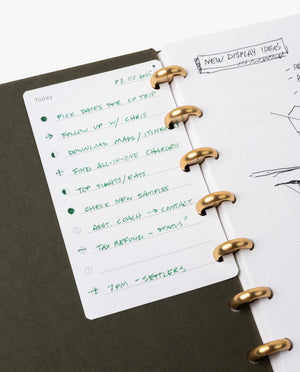 03.07.2025
Today
PICK DATES FOR CO TRIP
FOLLOW UP W/ CHRIS
DOWNLOAD MAPS/ITINER
FIND ALL-IN-ONE CHARGER
TOP SIGHTS/EATS
CHECK NEW SAMPLES
ASST. COACH → CONTACT
TAX REFUND - STATUS?
7PM - SETTLERS
NEW DISPLAY IDEAS